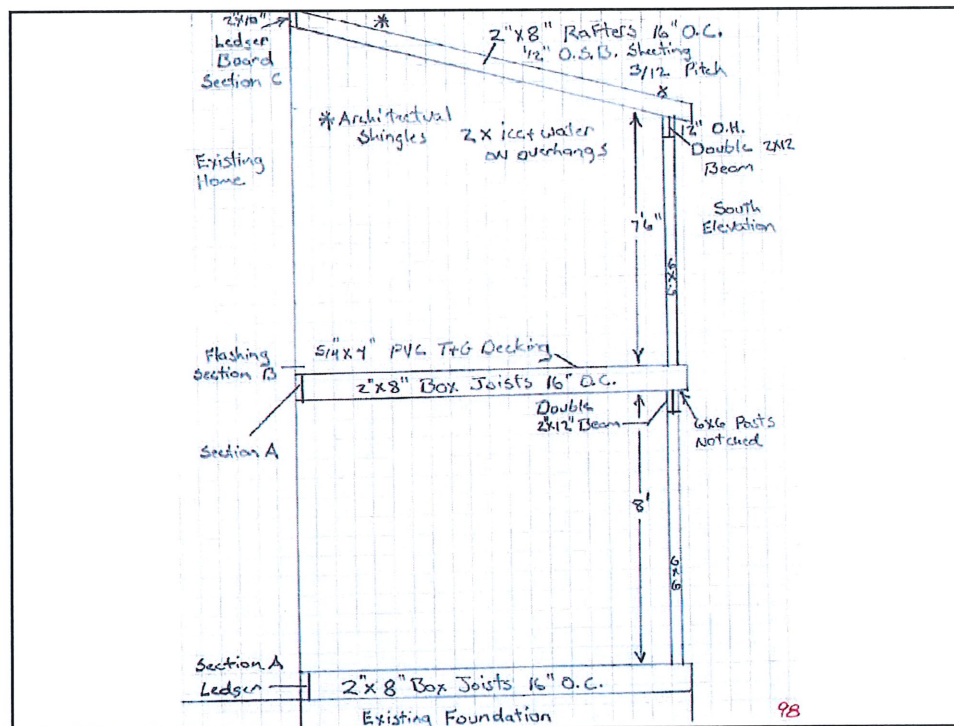 2"x10"
Ledger
Board
Section C
*
2"x8" Rafters 16" O.C.
1/2" O.S.B. Sheeting
3/12 Pitch
x
*Architectual
Shingles
2x ice+water
on overhangs
12" O.H.
Double 2x12
Beam
Existing
Home
South
Elevation
7'6"
6x6
Flashing
Section B
5/4"x4" PVC T+G Decking
2"x8" Box Joists 16" O.C.
Double
2"x12" Beam
6x6 Posts
Notched
Section A
8'
6x6
Section A
Ledger
2"x8" Box Joists 16" O.C.
Existing Foundation
98